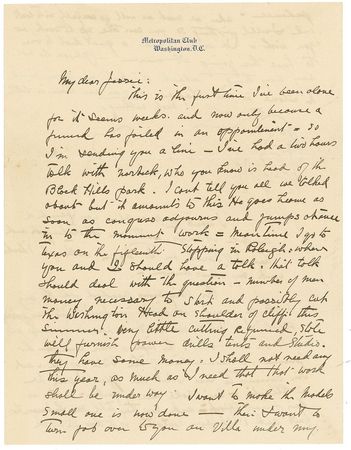 Metropolitan Club
Washington, D.C.
My dear Jessie:
This is the first time I've been alone
for it seems weeks. and now only because a
friend has failed in an appointment = so
I'm sending you a line - I've had a two hours
talk with Norbeck, who you know is head of the
Black Hills park. I cant tell you all we talked
about but it amounts to this He goes home as
soon as congress adjourns and jumps
in to the moment work = Meantime I go to
Texas on the fifteenth Stopping in Raleigh. where
you and I should have a talk. that talk
should deal with the question - number of men
money necessary to start and possibly cut
the Washington Head on Shoulder of cliff this
Summer. Very little cutting required, State
will furnish power drills tents and Studio.
They have some money. I shall not need any
this year, as much as I need that that work
shall be under way I want to make the models
small one is now done — then I want to
turn job over to you or Villa under my